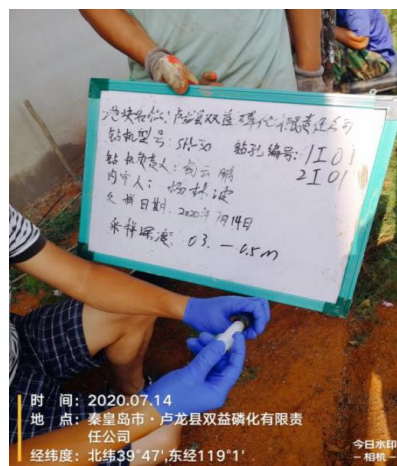 地块名称：卢龙县双益磷化有限责任公司
钻机型号：SH-30 钻孔编号：1I01
2I01
钻机负责人：云鹏
内审人：杨林波
采样日期：2020年7月14日
采样深度：03.—0.5m
时 间：2020.07.14
地 点：秦皇岛市·卢龙县双益磷化有限责
任公司
经纬度：北纬39°47',东经119°1'
今日水印
- 相机 -